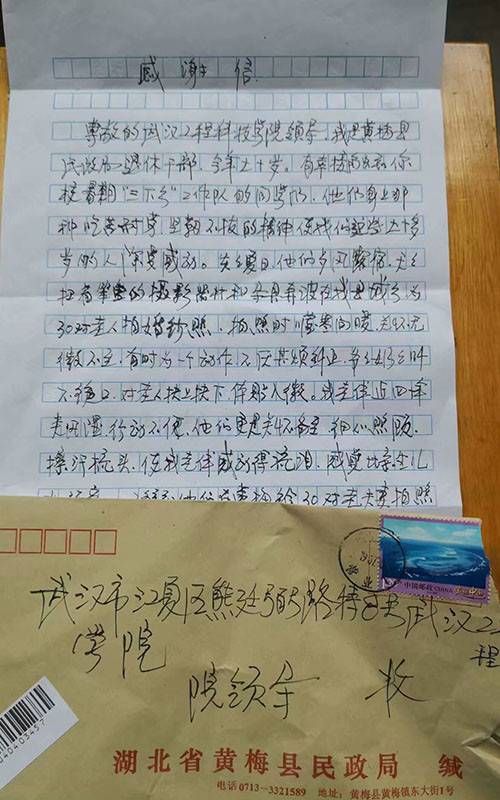 感谢信
尊敬的武汉工程科技学院领导，我是黄梅县
民政局一退休干部，今年七十岁。有幸接触在你
校暑期“三下乡”工作队的同学们，他们身上那
种吃苦耐劳，坚韧不拔的精神使我们这些七十多
岁的人深受感动。炎炎夏日，他们
扛着笨重的摄影器材和在我县城乡为
30对老人拍婚纱照，拍照时嘘寒问暖，关怀无
微不至，有时为一个动作不厌其烦纠正，爷爷奶奶叫
不绝口，对老人扶上扶下体贴入微。我老伴近四年
行动不便，他们更是关怀备至，细心照顾，
擦汗梳头，使我老伴感动得流泪，感觉比亲生儿
30对老夫妻拍照
武汉市江夏区熊廷弼路特 武汉工程
学院
院领导 收
中国邮政 CHINA
湖北省黄梅县民政局 缄
电话0713-3321589 地址：黄梅县黄梅镇东大街1号